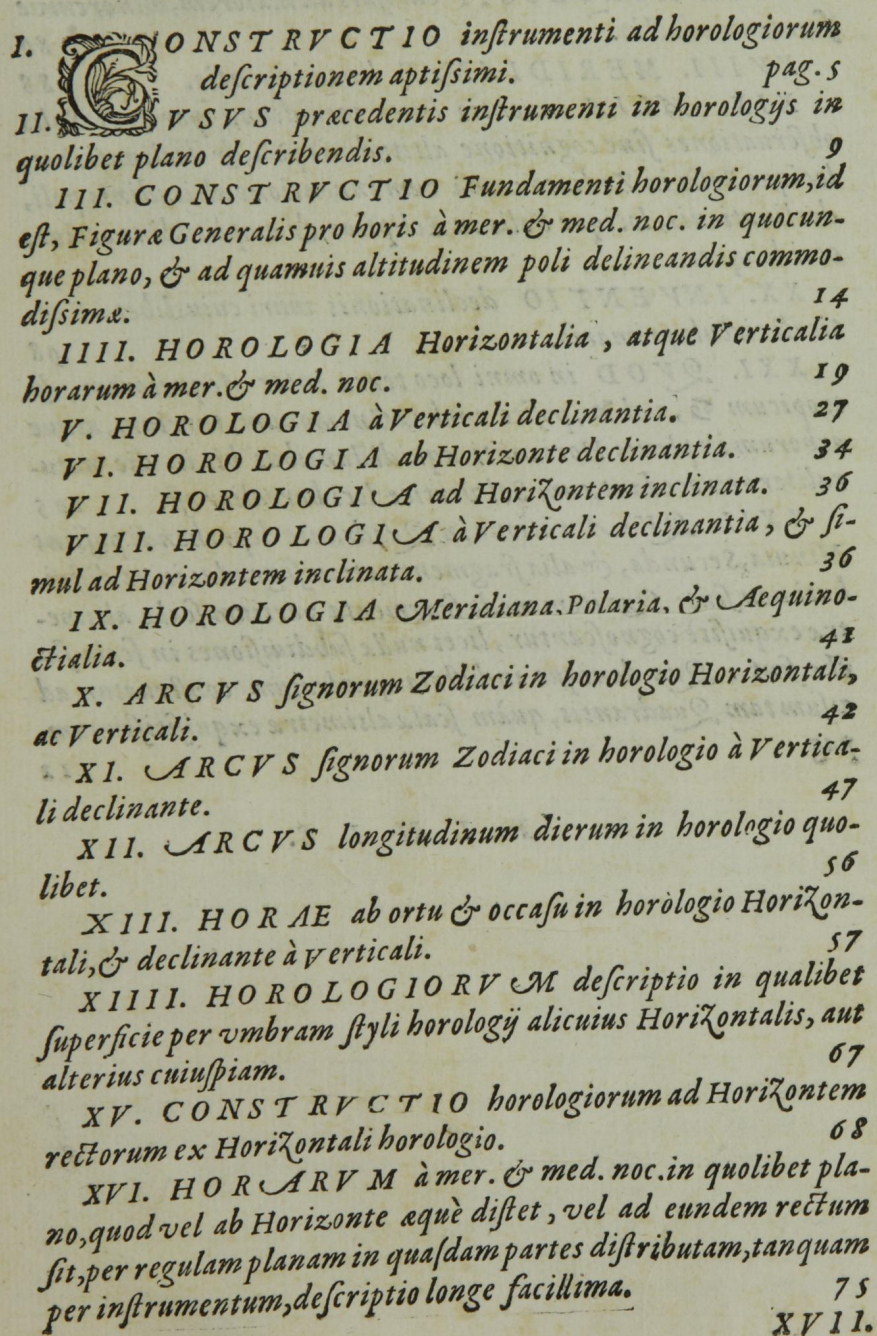 I. CONSTRVCTIO inſtrumenti ad horologiorum
deſcriptionem aptiſsimi. pag. 5
II. VSVS præcedentis inſtrumenti in horologijs in
quolibet plano deſcribendis. 9
III. CONSTRVCTIO Fundamenti horologiorum, id
eſt, Figuræ Generalis pro horis à mer. & med. noc. in quocun-
que plano, & ad quamuis altitudinem poli delineandis commo-
diſsimæ. 14
IIII. HOROLOGIA Horizontalia, atque Verticalia
horarum à mer. & med. noc. 19
V. HOROLOGIA à Verticali declinantia. 27
VI. HOROLOGIA ab Horizonte declinantia. 34
VII. HOROLOGIA ad Horizontem inclinata. 36
VIII. HOROLOGIA à Verticali declinantia, & ſi-
mul ad Horizontem inclinata. 36
IX. HOROLOGIA Meridiana, Polaria, & Aequino-
ctialia. 41
X. ARCVS ſignorum Zodiaci in horologio Horizontali,
ac Verticali. 42
XI. ARCVS ſignorum Zodiaci in horologio à Vertica-
li declinante. 47
XII. ARCVS longitudinum dierum in horologio quo-
libet. 56
XIII. HORAE ab ortu & occaſu in horòlogio Horizon-
tali, & declinante à Verticali. 57
XIIII. HOROLOGIORVM deſcriptio in qualibet
ſuperficie per vmbram ſtyli horologij alicuius Horizontalis, aut
alterius cuiuſpiam. 67
XV. CONSTRVCTIO horologiorum ad Horizontem
rectorum ex Horizontali horologio. 68
XVI. HORARVM à mer. & med. noc. in quolibet pla-
no, quod vel ab Horizonte æquè diſtet, vel ad eundem rectum
ſit, per regulam planam in quaſdam partes diſtributam, tanquam
per inſtrumentum, deſcriptio longe facillima. 75
XVII.